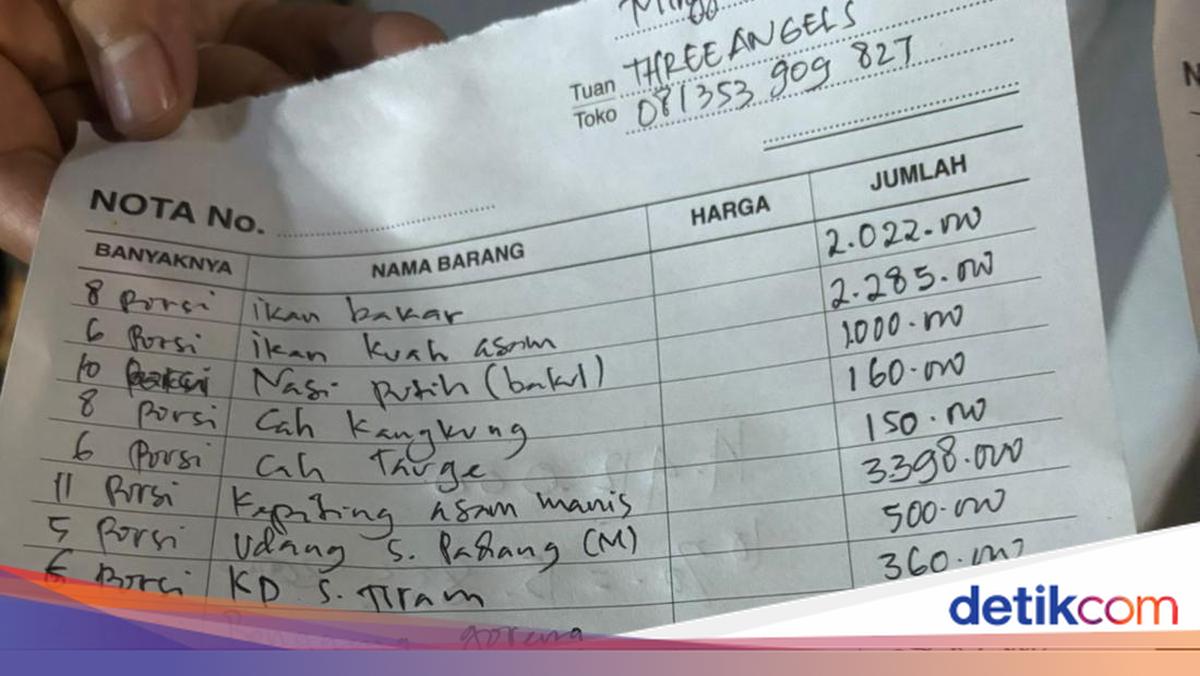 Tuan THREE ANGELS
Toko 081353 909 827
NOTA No.
BANYAKNYA NAMA BARANG HARGA JUMLAH
8 Porsi ikan bakar 2.022.000
6 Porsi ikan kuah asam 2.285.000
10 Nasi putih (bakul) 1.000.000
8 Porsi Cah Kangkung 160.000
6 Porsi Cah Tauge 150.000
11 Porsi Kepiting asam manis 3.398.000
5 Porsi Udang S. Padang (M) 500.000
6 Porsi KD S. Tiram 360.000
goreng
detikcom